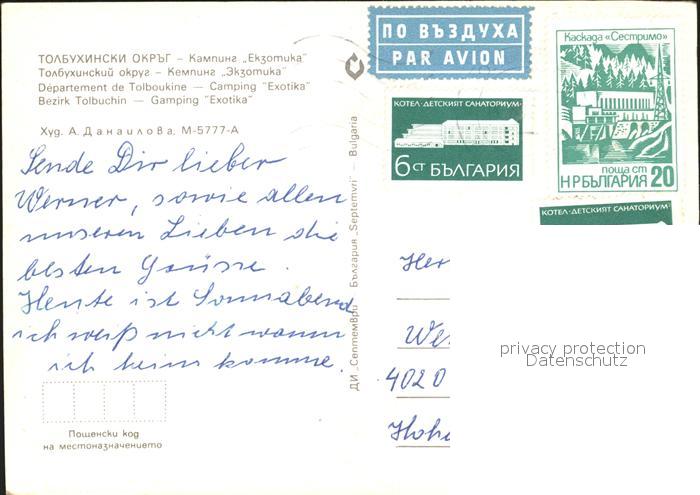 ТОЛБУХИНСКИ ОКРЪГ – Кампинг „Екзотика"
Толбухинский округ – Кемпинг „Экзотика"
Département de Tolboukine — Camping "Exotika"
Bezirk Tolbuchin — Gamping "Exotika"
Худ. А. Данаилова. М-5777-А
Sende Dir lieber
Werner, sowie allen
unseren Lieben die
besten Grüsse.
Heute ist Sonnabend
ich weiß nicht wann
ich heim komme.
Пощенски код
на местоназначението
ДИ „Септември" България „Septemvri" – Bulgaria
ПО ВЪЗДУХА
PAR AVION
КОТЕЛ·ДЕТСКИЯТ САНАТОРИУМ·
6 СТ БЪЛГАРИЯ
Каскада «Сестримо»
поща ст
НРБЪЛГАРИЯ 20
КОТЕЛ·ДЕТСКИЯТ САНАТОРИУМ·
Her
We
4020
Hohe
privacy protection
Datenschutz